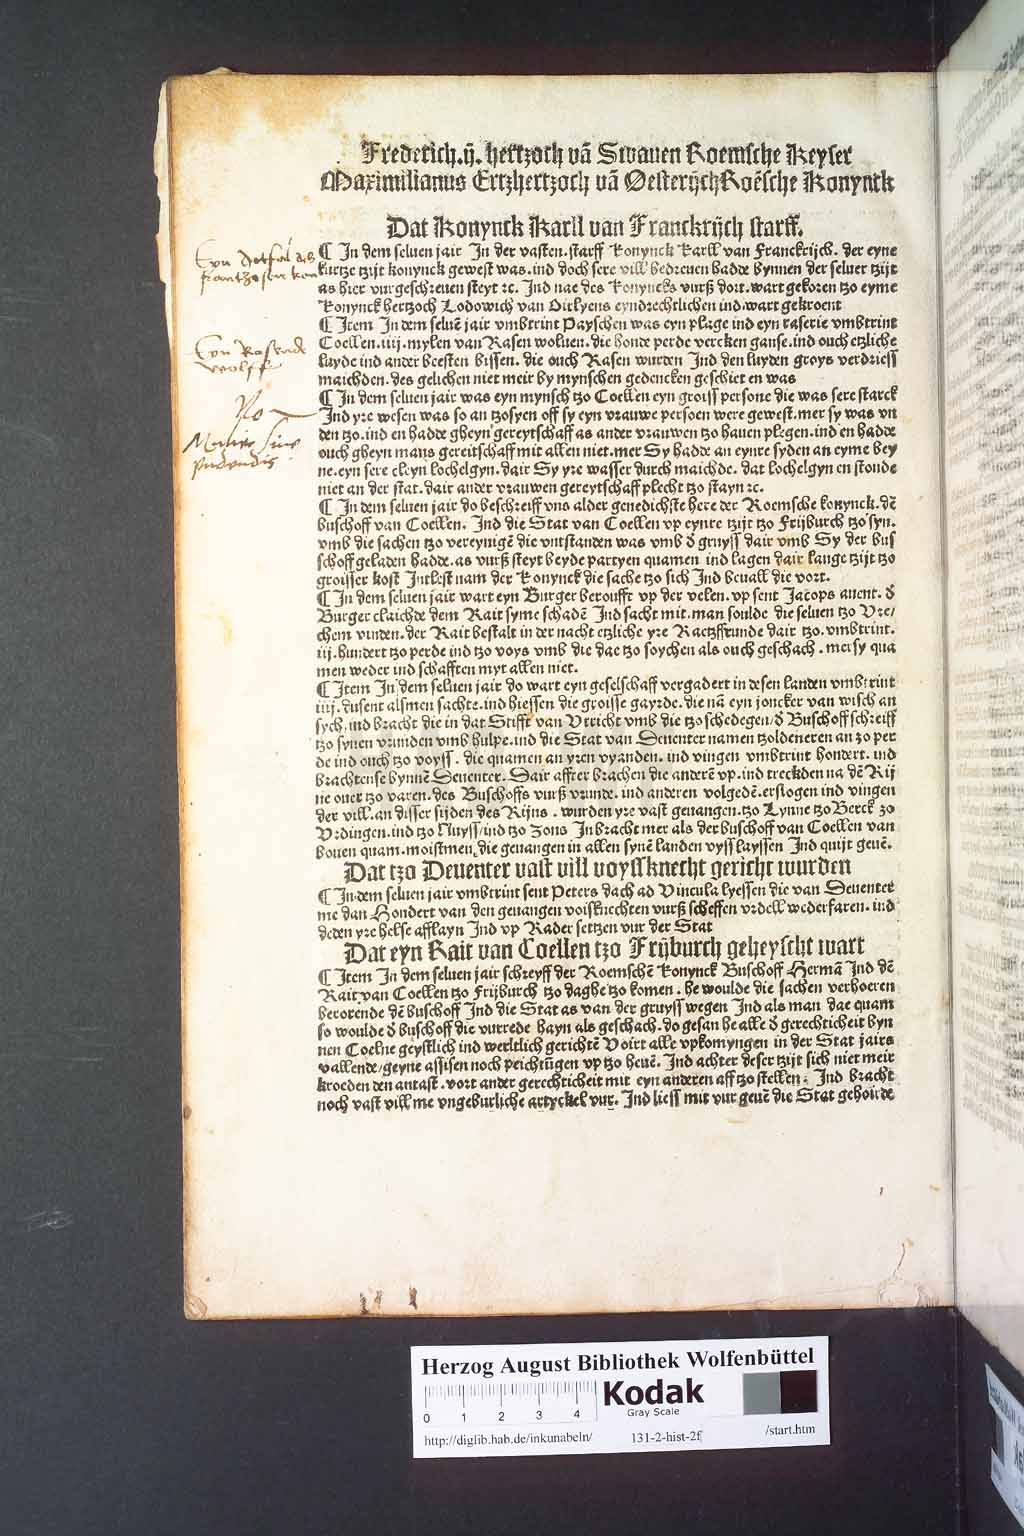 Frederich .ij. hertzoch vã Swauen Roemsche Keyser
Maximilianus Ertzhertzoch vã Oesterijch Roẽsche Konynck
Dat Konynck Karll van Franckrijch starff.
¶ In dem seluen jair In der vasten. starff Konynck Karll van Franckrijch. der eyne
kurtze tzijt konynck gewest was. ind doch sere vill bedreuen hadde bynnen der seluer tzijt
as hier vurgeschreuen steyt ⁊c. Ind nae des Konyncks vurß doit. wart gekoren tzo eyme
Konynck hertzoch Lodowich van Oirlyens eyndrechtlichen ind. wart gekroent
¶ Item In dem seluẽ jair vmbtrint Payschen was eyn plage ind eyn raserie vmbtrint
Coellen. iiij. mylen van Rasen woluen. die honde perde vercken ganse. ind ouch etzliche
luyde ind ander beesten bissen. die ouch Rasen wurden Ind den luyden groys verdriess
maichden. des gelichen niet meir by mynschen gedencken geschiet en was
¶ In dem seluen jair was eyn mynsch tzo Coellen eyn groiss persone die was sere starck
Ind yre wesen was so an tzosyen off sy eyn vrauwe persoen were gewest. mer sy was vn
den tzo. ind en hadde gheyn gereytschaff as ander vrauwen tzo hauen plegen. ind en hadde
ouch gheyn mans gereitschaff mit allen niet. mer Sy hadde an eynre syden an eyme bey
ne. eyn sere cleyn lochelgyn. dair Sy yre wasser durch maichde. dat lochelgyn en stonde
niet an der stat. dair ander vrauwen gereytschaff plecht tzo stayn ⁊c.
¶ In dem seluen jair do beschreiff vns alder genedichste here der Roemsche konynck. dẽ
buschoff van Coellen. Ind die Stat van Coellen vp eynre tzijt tzo Frijburch tzo syn.
vmb die sachen tzo vereynigẽ die vntstanden was vmb d gruyss dair vmb Sy der bus
schoff geladen hadde. as vurß steyt beyde partyen quamen ind lagen dair lange tzijt tzo
groisser kost Intlest nam der Konynck die sache tzo sich Ind beuall die vort.
¶ In dem seluen jair wart eyn Burger beroufft vp der velen. vp sent Jacops auent. d
Burger claichde dem Rait syme schadẽ Ind sacht mit. man soulde die seluen tzo Vre/
chem vinden. der Rait bestalt in der nacht etzliche yre Raetzffrunde dair tzo. vmbtrint.
iij. hundert tzo perde ind tzo voys vmb die dae tzo soychen als ouch geschach. mer sy qua
men weder ind schafften myt allen niet.
¶ Item In dem seluen jair do wart eyn geselschaff vergadert in desen landen vmbtrint
iiij. dusent alsmen sachte. ind hiessen die groisse gayrde. die nã eyn joncker van wisch an
sych. ind bracht die in dat Stifft van Vtricht vmb die tzo schedegen/ d Buschoff schreiff
tzo synen vrunden vmb hulpe. ind die Stat van Deuenter namen tzoldeneren an zo per
de ind ouch tzo voyss. die quamen an yren vyanden. ind vingen vmbtrint hondert. ind
brachtense bynnẽ Deuenter. Dair affter brachen die anderẽ vp. ind treckden na dẽ Rij
ne ouer tzo varen. des Buschoffs vurß vrunde. ind anderen volgedẽ. erslogen ind vingen
der vill. an disser sijden des Rijns. wurden yre vast geuangen. tzo Lynne tzo Berck zo
Vrdingen. ind tzo Nuyss/ ind tzo Zons In bracht mer als der buschoff van Coellen van
bouen quam. moistmen die geuangen in allen synẽ landen vyss layssen Ind quijt geuẽ.
Dat tzo Deuenter vast vill voyssknecht gericht wurden
¶ In dem seluen jair vmbtrint sent Peters dach ad Vincula lyessen die van Deuenter
me dan Hondert van den geuangen voisknechten vurß scheffen vrdell wederfaren. ind
deden yre helse afflayn Ind vp Rader setzen vur der Stat
Dat eyn Rait van Coellen tzo Frijburch geheyscht wart
¶ Item In dem seluen jair schreyff der Roemschẽ Konynck Buschoff Hermã Ind dẽ
Rait van Coellen tzo Frijburch tzo daghe tzo komen. he woulde die sachen verhoeren
berorende dẽ buschoff Ind die Stat as van der gruyss wegen Ind als man dae quam
so woulde d buschoff die vurrede hayn als geschach. do gesan he alle d gerechticheit byn
nen Coelne geystlich ind werltlich gerichtẽ Voirt alle vpkomyngen in der Stat jairs
vallende/ geyne assisen noch peichtũgen vp tzo heuẽ. Ind achter deser tzijt sich niet meir
kroeden den antast. vort ander gerechticheit mit eyn anderen aff tzo stellen. Ind bracht
noch vast vill me vngeburliche artyckel vur. Ind liess mit vur geuẽ die Stat gehoirde
Eyn
des
franthosesen kon
Eyn Rasende
wolff
No
Mulier sine
pudendis
Herzog August Bibliothek Wolfenbüttel
0 1 2 3 4
Kodak
Gray Scale
http://diglib.hab.de/inkunabeln/ 131-2-hist-2f /start.htm